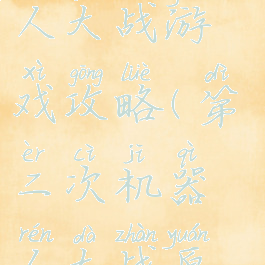 人大战游
xì gōng lüè dì
戏攻略(第
èr cì jī qì
二次机器
rén dà zhàn yuán
人大战原